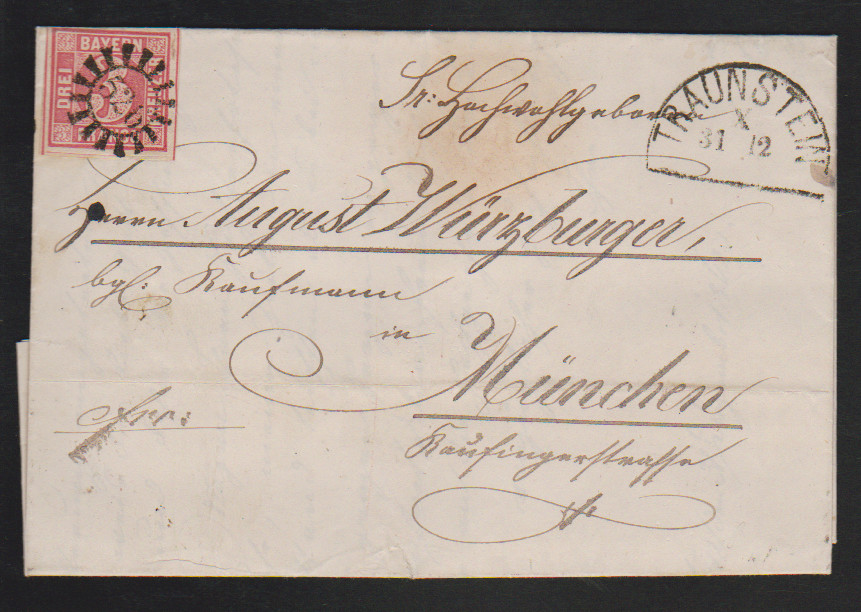 BAYERN
DREI
KREUZER
FRANCO
TRAUNSTEIN
X
31 12
Sr: Hochwohlgeboren
Herrn August Würzburger,
bgl: Kaufmann
in
München
frco:
Kaufingerstrasse